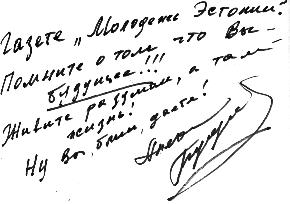 Газете „Молодежь Эстонии".
Помните о том, что Вы –
будущее!!!
Живите разумом, а там –
жизнь!
Ну вы, блин, даете!